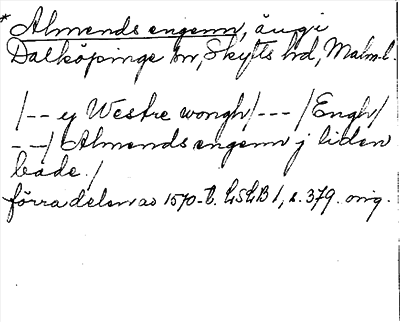 * Almends engenn, äng i
Dalköpinge sn, Skytts hd, Malm. l.
/-- ej Westre wongh/--- /Engh/
--/ Almends engenn j liden
både./
förra delen av 1570-t. LSLB 1, s. 379. orig.